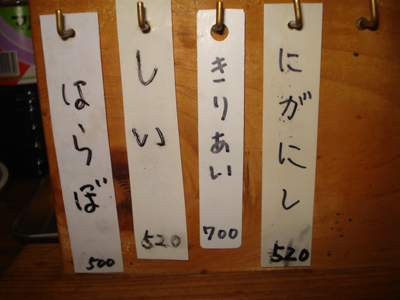 にがにし
520
きりあい
700
しい
520
はらぼ
500